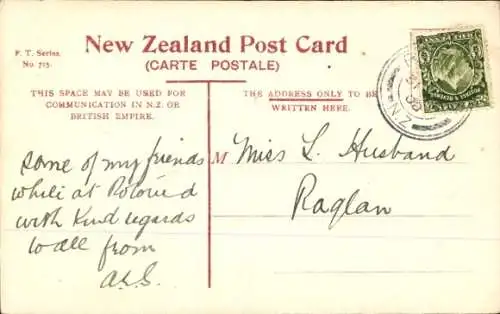 F. T. Series.
No 713.
New Zealand Post Card
(CARTE POSTALE)
THIS SPACE MAY BE USED FOR
COMMUNICATION IN N.Z. OR
BRITISH EMPIRE.
THE ADDRESS ONLY TO BE
WRITTEN HERE.
some of my friends
while at
with Kind regards
to all from
M Miss L. Husband
Raglan
N.Z